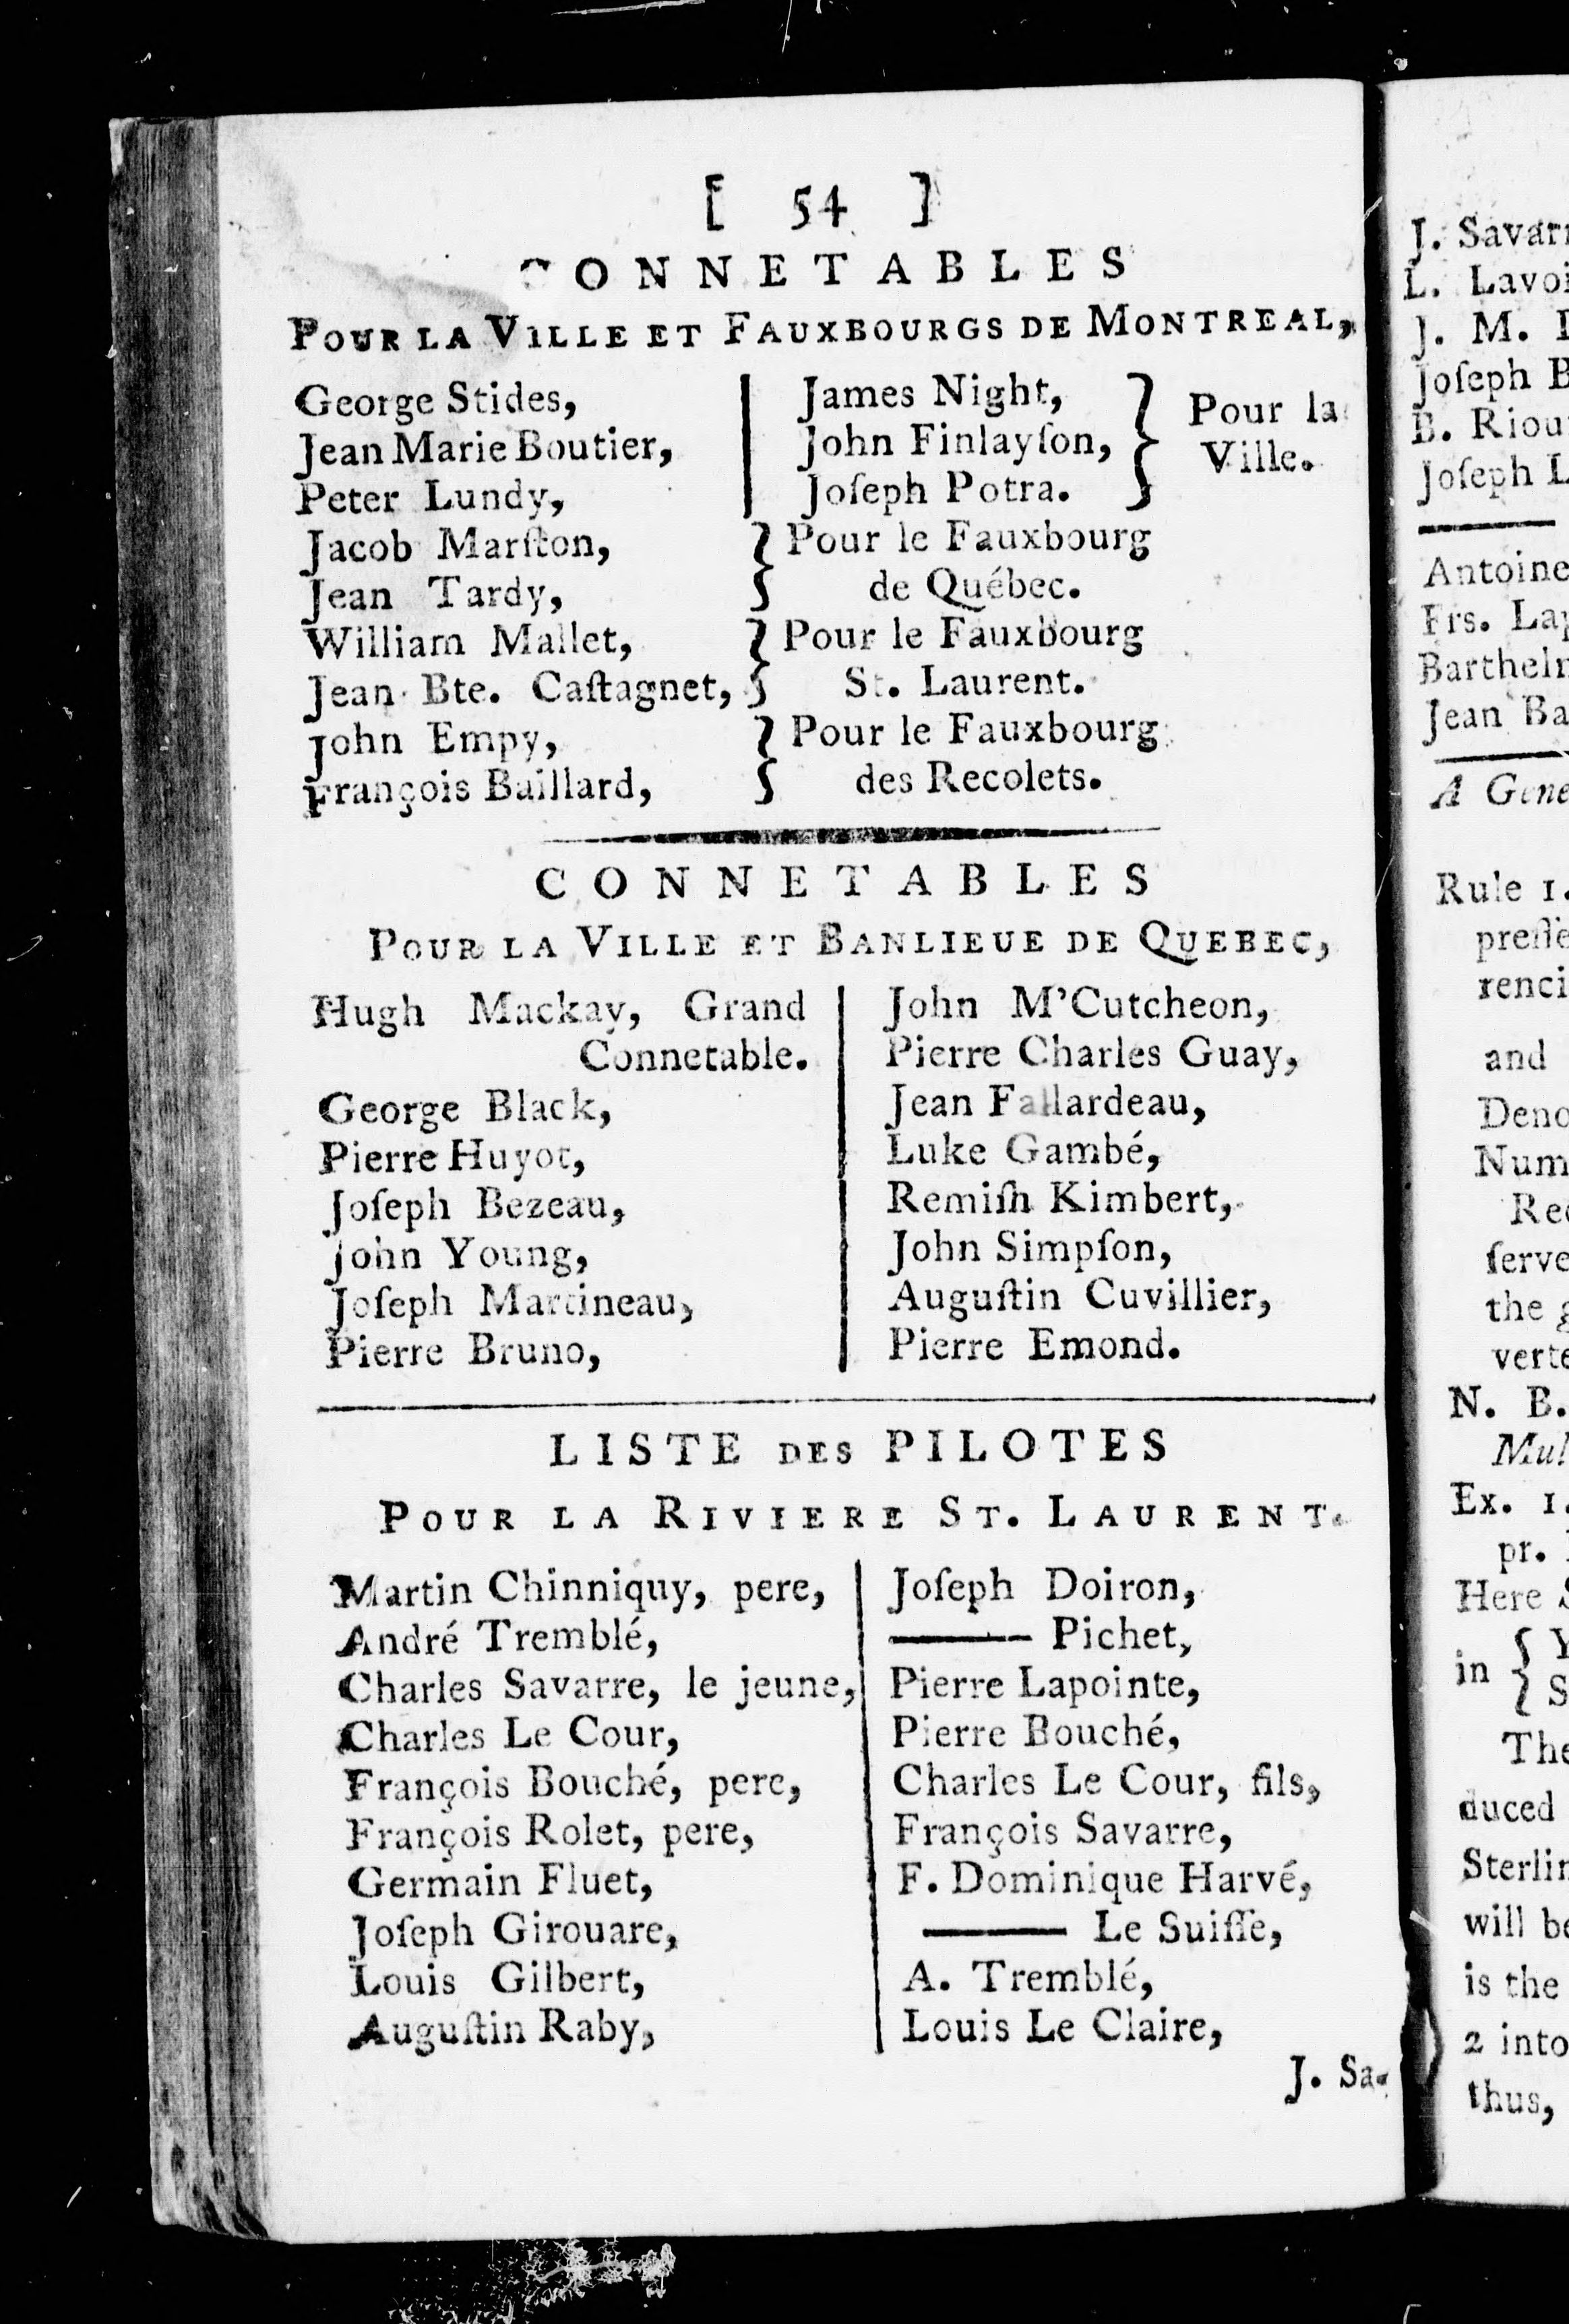 [ 54 ]
CONNETABLES
POUR LA VILLE ET FAUXBOURGS DE MONTREAL,
George Stides,
Jean Marie Boutier,
Peter Lundy,
James Night,
John Finlayſon,
Joſeph Potra.
Pour la
Ville.
Jacob Marſton,
Jean Tardy,
Pour le Fauxbourg
de Québec.
William Mallet,
Jean Bte. Caſtagnet,
Pour le Fauxbourg
St. Laurent.
John Empy,
François Baillard,
Pour le Fauxbourg
des Recolets.
CONNETABLES
POUR LA VILLE ET BANLIEUE DE QUEBEC,
Hugh Mackay, Grand
Connetable.
George Black,
Pierre Huyot,
Joſeph Bezeau,
John Young,
Joſeph Martineau,
Pierre Bruno,
John M'Cutcheon,
Pierre Charles Guay,
Jean Fallardeau,
Luke Gambé,
Remiſh Kimbert,
John Simpſon,
Auguſtin Cuvillier,
Pierre Emond.
LISTE DES PILOTES
POUR LA RIVIERE ST. LAURENT.
Martin Chinniquy, pere,
André Tremblé,
Charles Savarre, le jeune,
Charles Le Cour,
François Bouché, pere,
François Rolet, pere,
Germain Fluet,
Joſeph Girouare,
Louis Gilbert,
Auguſtin Raby,
Joſeph Doiron,
——— Pichet,
Pierre Lapointe,
Pierre Bouché,
Charles Le Cour, fils,
François Savarre,
F. Dominique Harvé,
——— Le Suiſſe,
A. Tremblé,
Louis Le Claire,
J. Sa-
J.
L.
J. M.
Joſeph
B.
Joſeph
Antoine
Frs.
Jean
A
Rule 1.
and
N. B.
Ex. 1.
pr.
Here
in
duced
will
is the
2 into
thus,